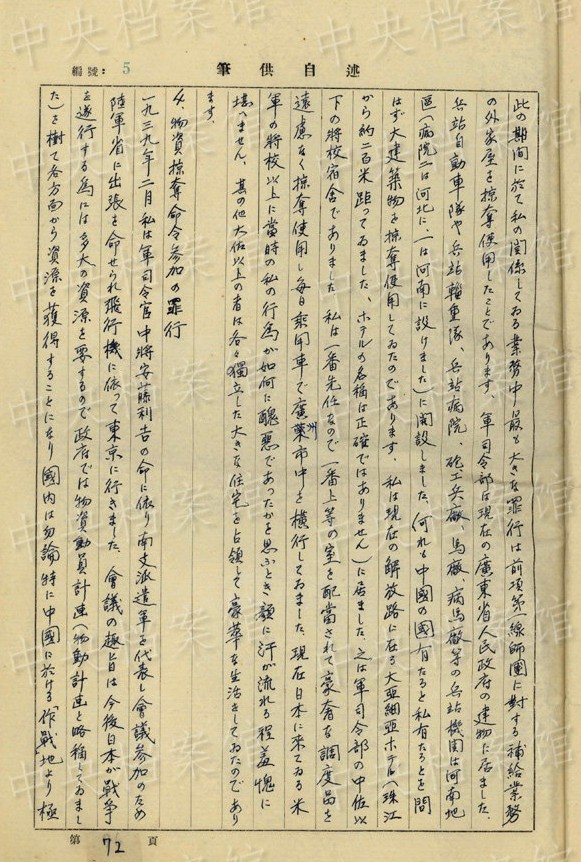 中央档案馆
編號: 5
筆供自述
此の期間に於て私の関係してゐる業務中最も大きな罪行は前項第一線師團に對する補給業務
の外家屋を掠奪使用したことであります。軍司令部は現在の廣東省人民政府の建物に居ました。
兵站自動車隊や兵站輜重隊、兵站病院、砲工兵廠、馬廠、病馬廠等の兵站機関は河南地
區(病院二は河北に、一は河南に設けました)に開設しました、何れも中國の國有たると私有たるとを問
はず大建築物を掠奪使用してゐたのであります。私は現在の解放路に在る大亜細亜ホテル(珠江
から約二百米距ってゐました、ホテルの名稱は正確ではありません)に居ました、之は軍司令部の中佐以
下の將校宿舎でありました 私は一番先任なので一番上等の室を配當されて豪奢な調度品を
遠慮なく掠奪使用し毎日乘用車で廣州市中を横行してゐました、現在日本に来てゐる米
軍の將校以上に當時の私の行為が如何に醜悪であったかを思ふとき顔に汗が流れる程羞愧に
堪へません、其の他大佐以上の者は各々獨立した大きな住宅を占領して豪華な生活をしてゐたのであり
ます。
4、物資掠奪命令參加の罪行
一九三九年二月私は軍司令官中將安藤利吉の命に依り南支派遣軍を代表し會議參加のため
陸軍省に出張を命ぜられ飛行機に依って東京に行きました、會議の趣旨は今後日本が戰爭
を遂行する為には多大の資源を要するので政府では物資動員計画(物動計画と略稱してゐまし
た)を樹て各方面から資源を獲得することになり 國内は勿論特に中國に於ける作戰地より極
第 72 頁